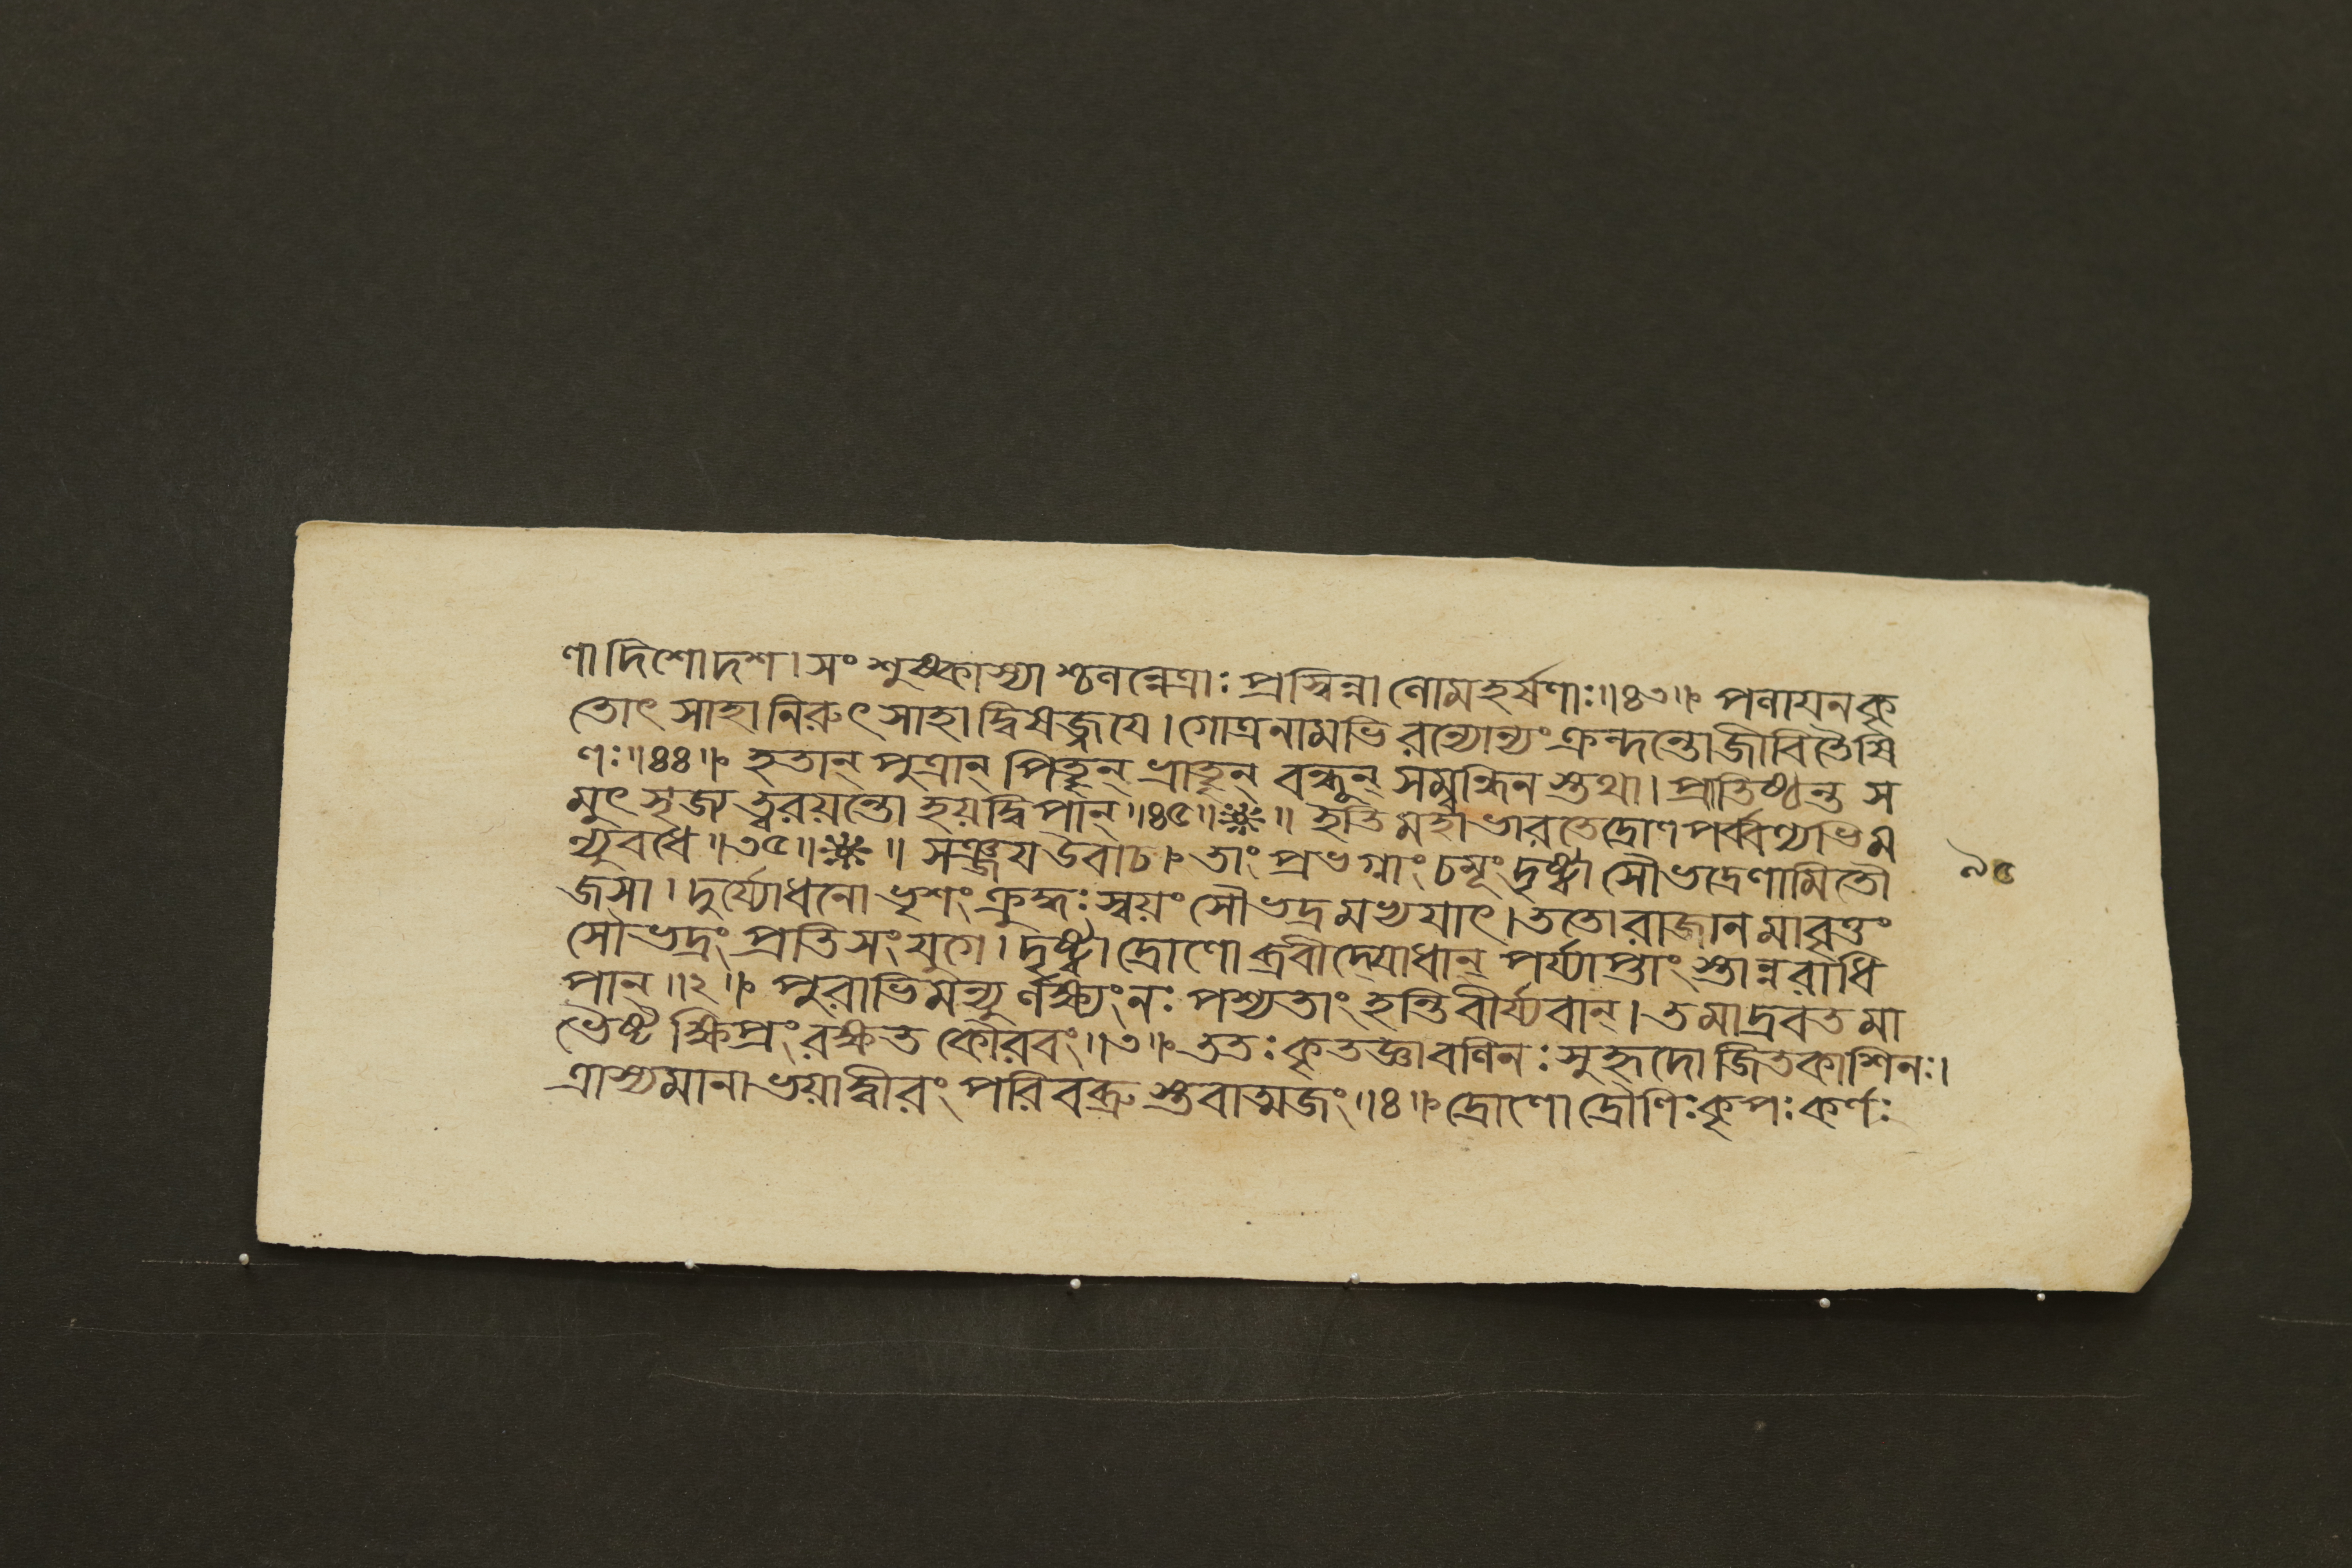 ণা দিশোদশ। সং শুষ্কাস্যা শ্চলন্নেত্রাঃ প্রস্বিন্না লোমহর্ষণাঃ॥৪৩॥ পলায়নকৃ
তোৎ সাহা নিরুৎ সাহা দ্বিষজ্জয়ে। গোত্রনামভি রন্যোন্যং ক্রন্দন্তো জীবিতৈষি
ণঃ॥৪৪॥ হতান্ পুত্রান্ পিতৄন্ ভ্রাতৄন্ বন্ধূন্ সম্বন্ধিন স্তথা। প্রাতিষ্ঠন্ত স
মুৎ সৃজ্য ত্বরয়ন্তো হয়দ্বিপান্॥৪৫॥ ॥ ইতি মহাভারতে দ্রোণপর্ব্বণ্যভিম
ন্যুবধে॥৩৫॥ ॥ সঞ্জয় উবাচ। তাং প্রভগ্নাং চমূং দৃষ্ট্বা সৌভদ্রেণামিতৌ
জসা। দুর্য্যোধনো ভৃশং ক্রুদ্ধঃ স্বয়ং সৌভদ্রমভ্যয়াৎ। ততো রাজানমাবৃত্তং
সৌভদ্রং প্রতি সংযুগে। দৃষ্ট্বা দ্রোণো ব্রবীদ্যোধান্ পর্য্যাপ্তাং স্তান্নরাধি
পান্॥২॥ পুরাভিমন্যু র্লক্ষ্যং নঃ পশ্যতাং হন্তি বীর্য্যবান্। তমাদ্রবত মা
ভৈষ্ট ক্ষিপ্রং রক্ষত কৌরবং॥৩॥ ততঃ কৃতজ্ঞা বলিনঃ সুহৃদো জিতকাশিনঃ।
ত্রাস্যমানা ভয়াদ্বীরং পরিবব্রু স্তবাত্মজং॥৪॥ দ্রোণো দ্রৌণিঃ কৃপঃ কর্ণঃ
৯৫